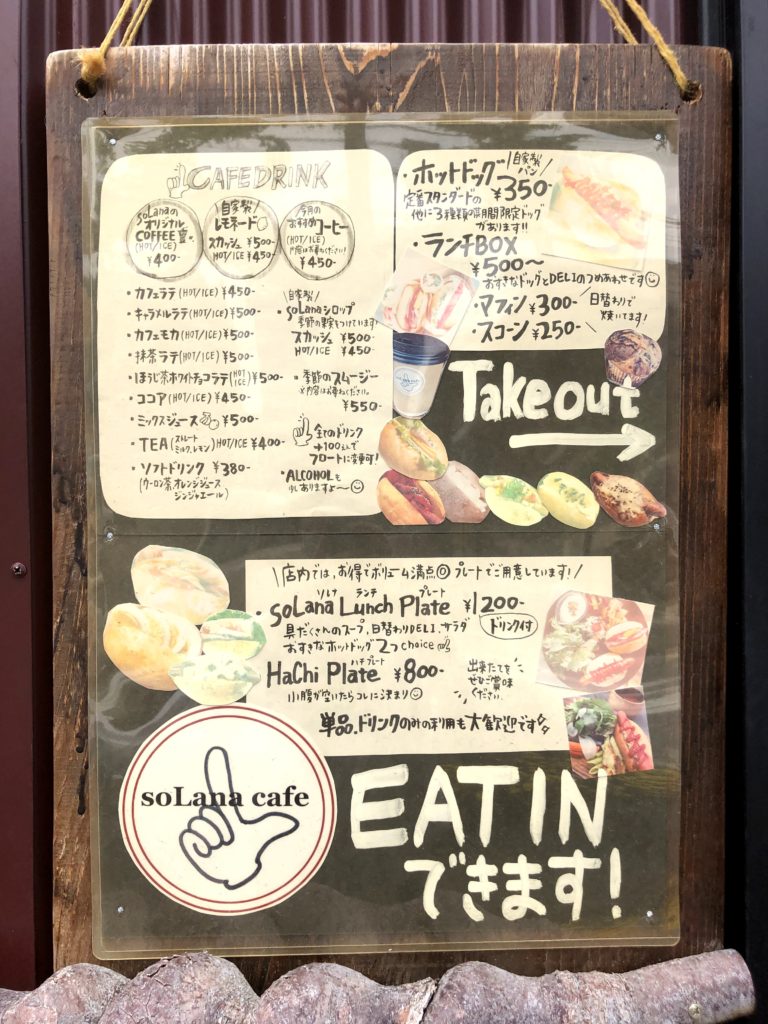 CAFE DRINK
soLanaの
オリジナル
COFFEE豆
(HOT/ICE)
¥400-
自家製
レモネード
スカッシュ ¥500-
HOT/ICE ¥450-
今月の
おすすめコーヒー
(HOT/ICE)
¥450-
・カフェラテ (HOT/ICE) ¥450-
・キャラメルラテ (HOT/ICE) ¥500-
・カフェモカ (HOT/ICE) ¥500-
・抹茶ラテ (HOT/ICE) ¥500-
・ほうじ茶ホワイトチョコラテ (HOT ICE) ¥500-
・ココア (HOT/ICE) ¥450-
・ミックスジュース ¥500-
・TEA (ストレート ミルク、レモン) HOT/ICE ¥400-
・ソフトドリンク ¥380-
(ウーロン茶 オレンジジュース
ジンジャエール)
自家製
・soLanaシロップ
季節の果実をつけています!
スカッシュ ¥500-
HOT/ICE ¥450-
・季節のスムージー
※内容はお尋ねください。
¥550-
全てのドリンク
+100えんで
フロートに変更可!
・ALCOHOLも
少しありますよ〜
・ホットドッグ
自家製
パン
¥350-
定番スタンダードの
他に3種類の期間限定ドッグ
があります!!
・ランチBOX
¥500〜
おすきなドッグとDELIのつめあわせです
・マフィン ¥300-
・スコーン ¥250-
日替わりで
焼いてます!
Takeout
\店内では、お得でボリューム満点◎ プレートでご用意しています!/
ソラナ ランチ プレート
・soLana Lunch Plate ¥1200-
具だくさんのスープ、日替わりDELI、サラダ
おすきなホットドッグ2つchoice
ドリンク付
ハチプレート
HaChi Plate ¥800-
小腹が空いたらコレに決まり
出来たてを
ぜひご賞味
ください。
単品、ドリンクのみの利用も大歓迎です
soLana cafe
EAT IN
できます!